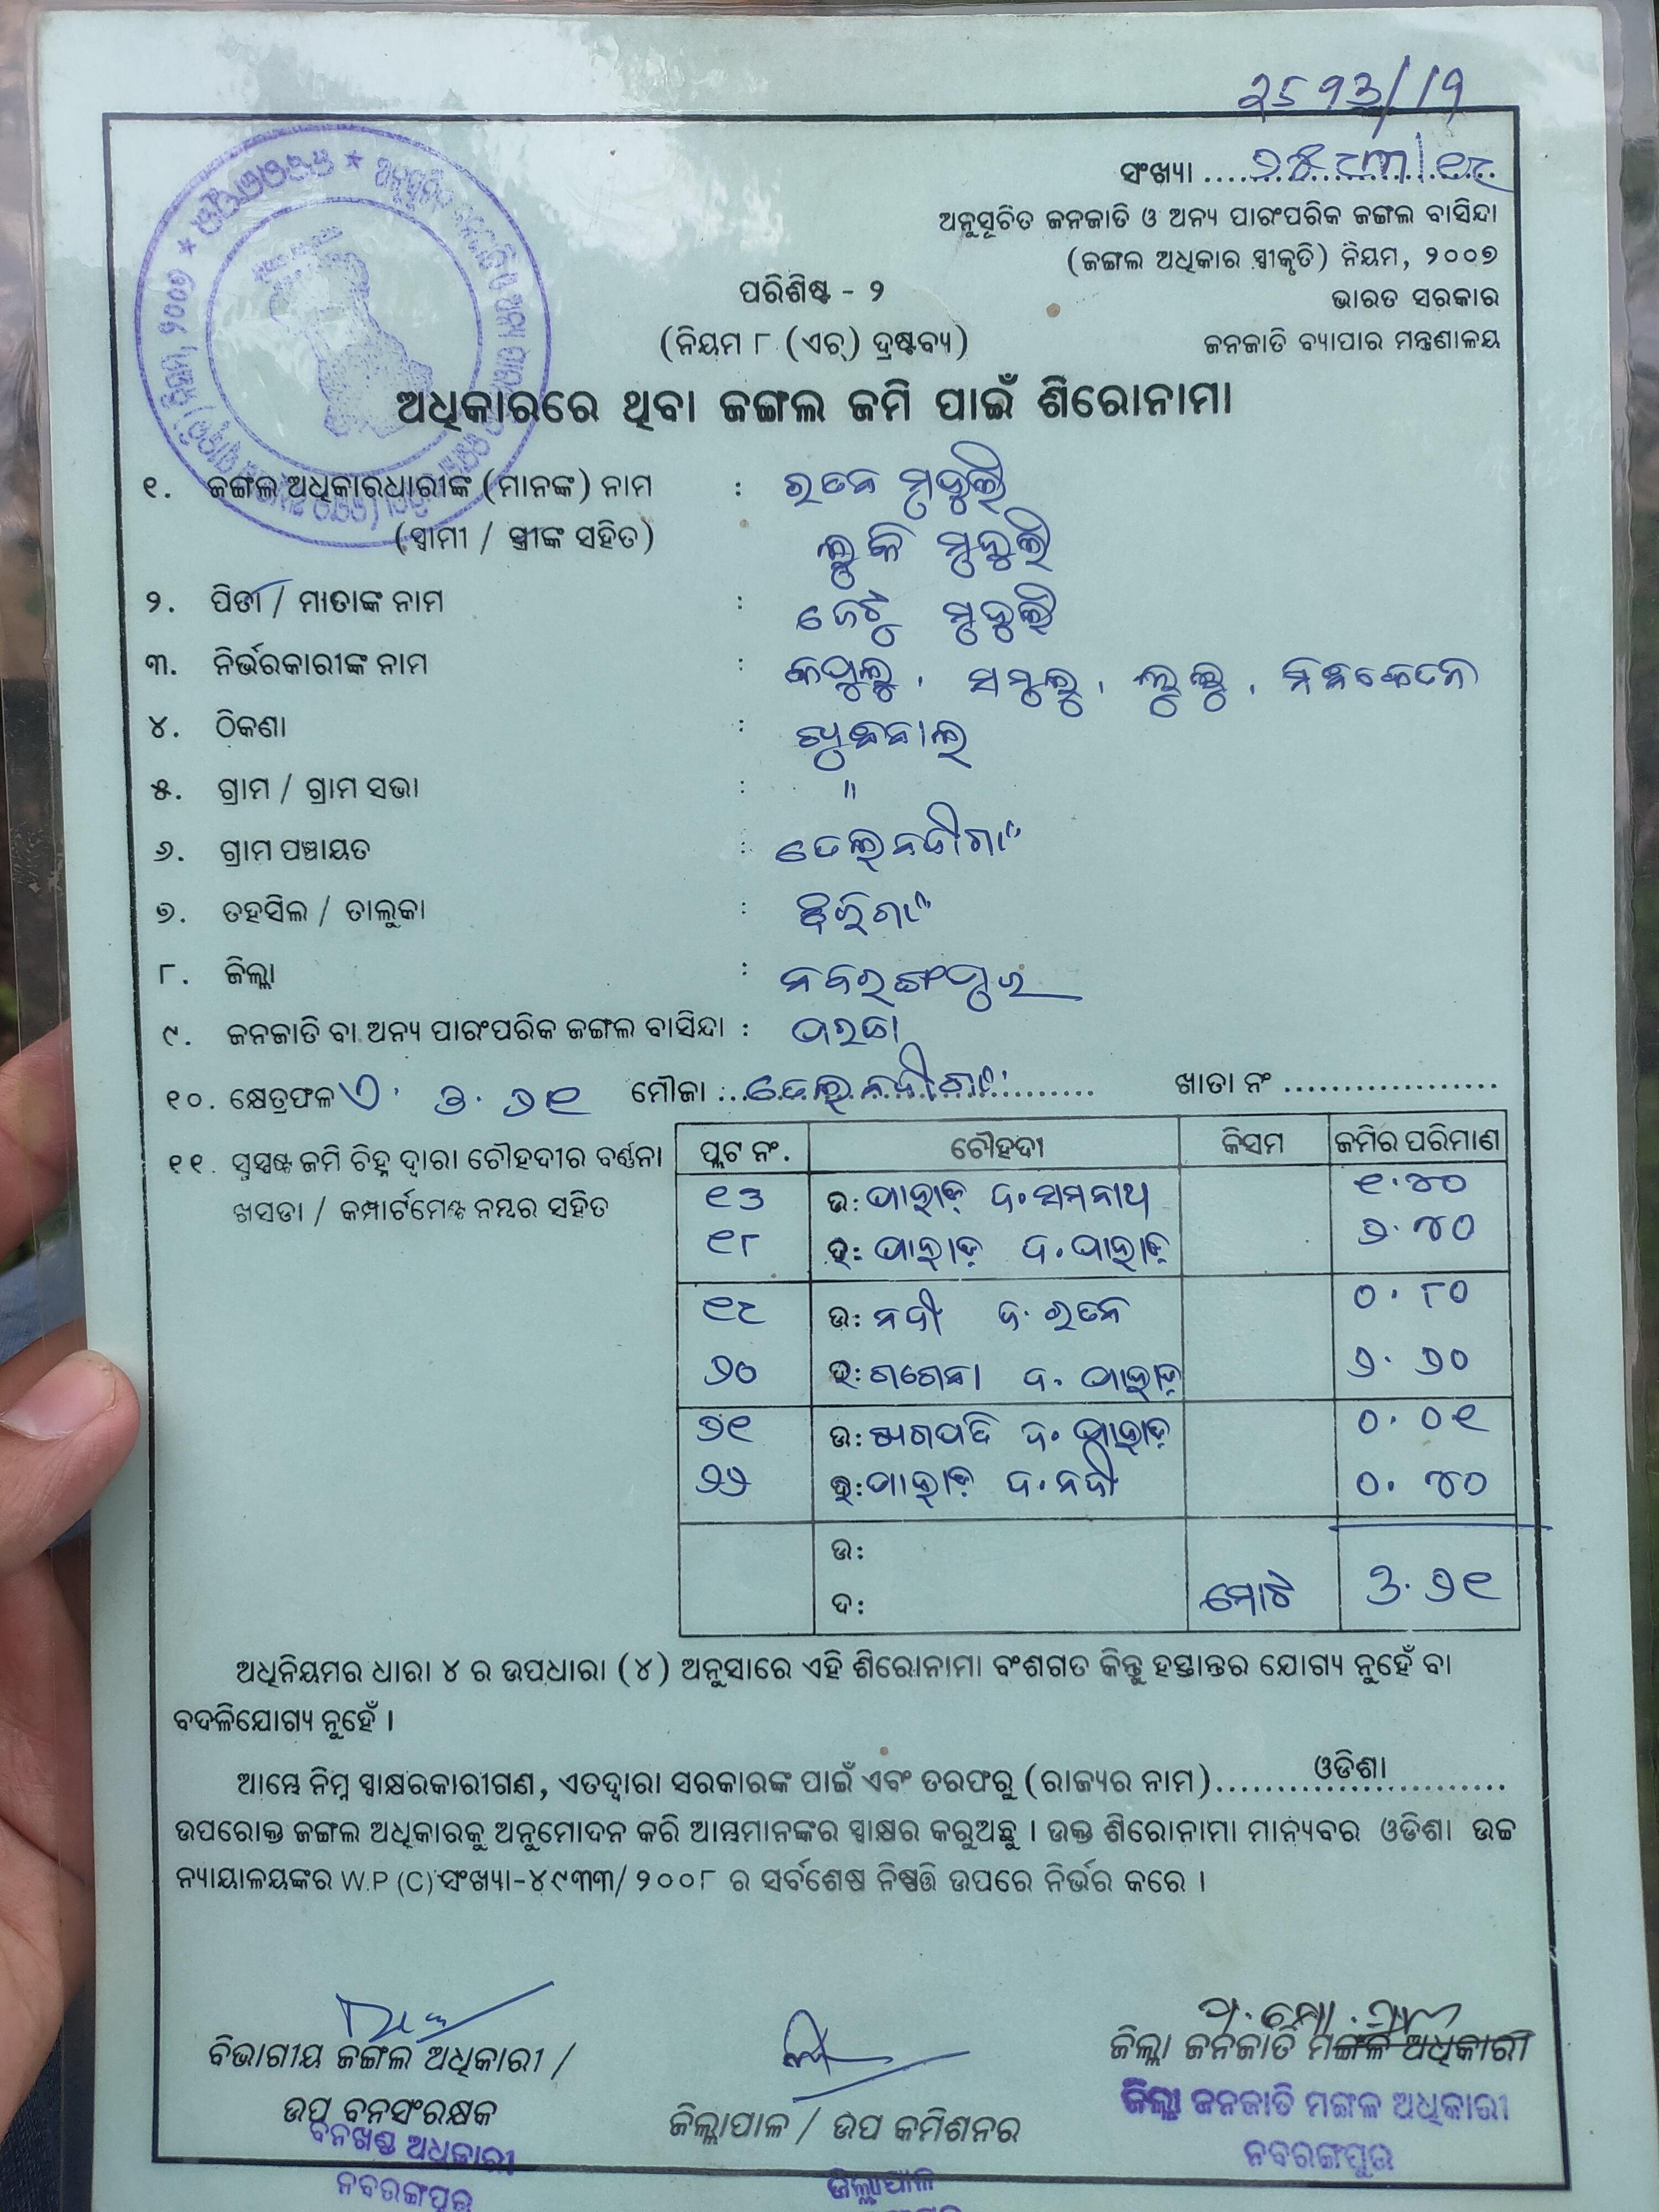 2593/19
ସଂଖ୍ୟା
ଅନୁସୂଚିତ ଜନଜାତି ଓ ଅନ୍ୟ ପାରଂପରିକ ଜଙ୍ଗଲ ବାସିନ୍ଦା
(ଜଙ୍ଗଲ ଅଧିକାର ସ୍ୱୀକୃତି) ନିୟମ, ୨୦୦୭
ଭାରତ ସରକାର
ଜନଜାତି ବ୍ୟାପାର ମନ୍ତ୍ରଣାଳୟ
ପରିଶିଷ୍ଟ - ୨
(ନିୟମ ୮ (ଏଚ୍) ଦ୍ରଷ୍ଟବ୍ୟ)
ଅଧିକାରରେ ଥିବା ଜଙ୍ଗଲ ଜମି ପାଇଁ ଶିରୋନାମା
୧. ଜଙ୍ଗଲ ଅଧିକାରଧାରୀଙ୍କ (ମାନଙ୍କ) ନାମ : ରତନ ମୁଦୁଲି
(ସ୍ୱାମୀ / ସ୍ତ୍ରୀଙ୍କ ସହିତ) ଲୁକି ମୁଦୁଲି
୨. ପିତା / ମାତାଙ୍କ ନାମ : ଜେଟୁ ମୁଦୁଲି
୩. ନିର୍ଭରକାରୀଙ୍କ ନାମ :
୪. ଠିକଣା :
୫. ଗ୍ରାମ / ଗ୍ରାମ ସଭା : "
୬. ଗ୍ରାମ ପଞ୍ଚାୟତ : ତେଲନଦୀଗାଁ
୭. ତହସିଲ / ତାଲୁକା : ଝରିଗାଁ
୮. ଜିଲ୍ଲା : ନବରଙ୍ଗପୁର
୯. ଜନଜାତି ବା ଅନ୍ୟ ପାରଂପରିକ ଜଙ୍ଗଲ ବାସିନ୍ଦା : ପରଜା
୧୦. କ୍ଷେତ୍ରଫଳ ଏ. ୬.୨୧ ମୌଜା : ତେଲନଦୀଗାଁ ଖାତା ନଂ
୧୧. ସୁସ୍ପଷ୍ଟ ଜମି ଚିହ୍ନ ଦ୍ୱାରା ଚୌହଦୀର ବର୍ଣ୍ଣନା
ଖସଡା / କମ୍ପାର୍ଟମେଣ୍ଟ ନମ୍ବର ସହିତ
ପ୍ଲଟ ନଂ. ଚୌହଦୀ କିସମ ଜମିର ପରିମାଣ
୧୬ ଉ: ପାହାଡ଼ ଦ: ସମନାଥ ୧.୪୦
୧୮ ଉ: ପାହାଡ଼ ଦ. ପାହାଡ଼ ୨.୪୦
୧୯ ଉ: ନଦୀ ଦ. ରତନ ୦.୮୦
୨୦ ଦ. ପାହାଡ଼
୨୧ ଉ: ଦ. ପାହାଡ଼ ୦.୦୧
ପାହାଡ଼ ଦ. ନଦୀ ୦.୪୦
ଉ:
ଦ: ମୋଟ ୬.୨୧
ଅଧିନିୟମର ଧାରା ୪ ର ଉପଧାରା (୪) ଅନୁସାରେ ଏହି ଶିରୋନାମା ବଂଶଗତ କିନ୍ତୁ ହସ୍ତାନ୍ତର ଯୋଗ୍ୟ ନୁହେଁ ବା
ବଦଳିଯୋଗ୍ୟ ନୁହେଁ ।
ଆମ୍ଭେ ନିମ୍ନ ସ୍ୱାକ୍ଷରକାରୀଗଣ, ଏତଦ୍ଦ୍ୱାରା ସରକାରଙ୍କ ପାଇଁ ଏବଂ ତରଫରୁ (ରାଜ୍ୟର ନାମ) ଓଡିଶା
ଉପରୋକ୍ତ ଜଙ୍ଗଲ ଅଧିକାରକୁ ଅନୁମୋଦନ କରି ଆମ୍ଭମାନଙ୍କର ସ୍ୱାକ୍ଷର କରୁଅଛୁ । ଉକ୍ତ ଶିରୋନାମା ମାନ୍ୟବର ଓଡିଶା ଉଚ୍ଚ
ନ୍ୟାୟାଳୟଙ୍କର W.P (C) ସଂଖ୍ୟା-୪୯୩୩/ ୨୦୦୮ ର ସର୍ବଶେଷ ନିଷ୍ପତ୍ତି ଉପରେ ନିର୍ଭର କରେ ।
ବିଭାଗୀୟ ଜଙ୍ଗଲ ଅଧିକାରୀ /
ଉପ ବନସଂରକ୍ଷକ
ବନଖଣ୍ଡ ଅଧିକାରୀ
ନବରଙ୍ଗପୁର
ଜିଲ୍ଲାପାଳ / ଉପ କମିଶନର
ଜିଲ୍ଲାପାଳ
ଜିଲ୍ଲା ଜନଜାତି ମଙ୍ଗଳ ଅଧିକାରୀ
ଜିଲ୍ଲା ଜନଜାତି ମଙ୍ଗଳ ଅଧିକାରୀ
ନବରଙ୍ଗପୁର